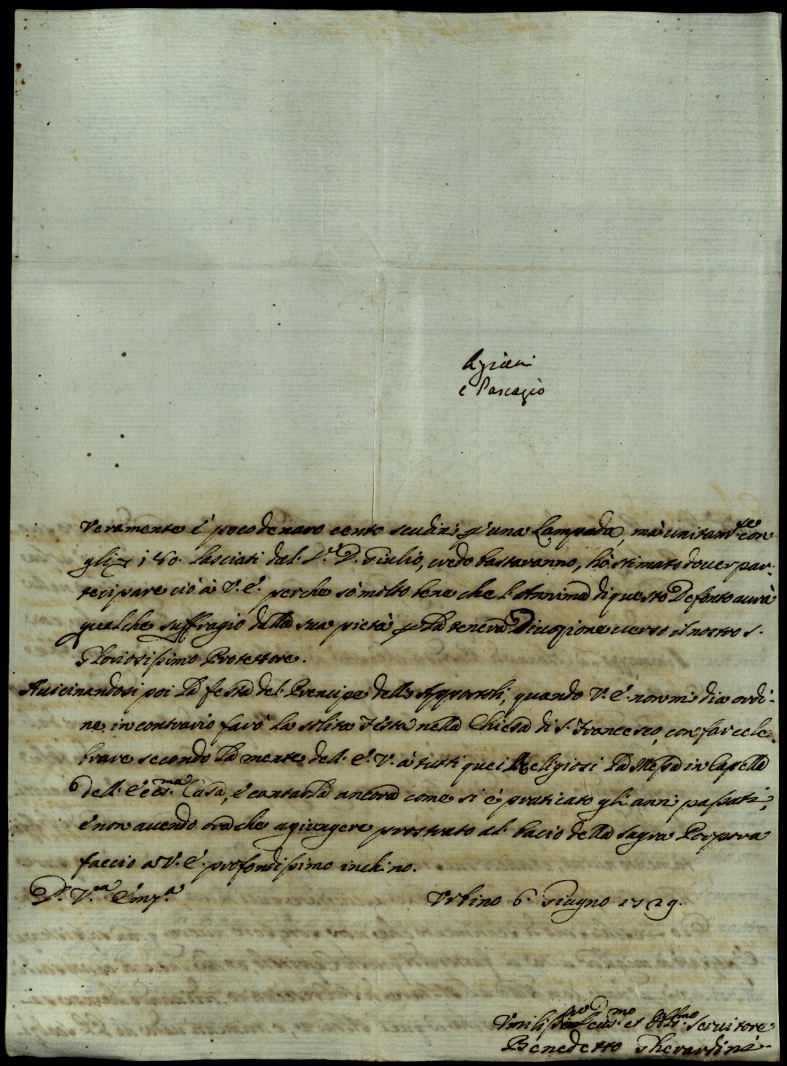 e
Veramente è poco denaro cento scudini p una Lampada, mà unitam.te con
gli 180. lasciati dal S.r D. Giulio, credo bastaranno, hò stimato dover par-
tecipare ciò à V. E. perche sò molto bene che l'Anima di questo Defonto avrà
qualche suffragio dalla sua pietà p la tenera Divozione verso il nostro S.
Gloriosissimo Protettore.
Avicinandosi poi la festa del Prencipe delli Appostoli, quando V. E. non mi dia ordi-
ne in contrario farò la solita Festa nella Chiesa di S. Francesco, con far cele-
brare secondo la mente dell'E. V. à tutti quei Religiosi la Messa in Capella
dell'Ecc.ma Casa, e cantarla ancora come si è praticato gli anni passati,
è non avendo ora che agiungere prostrato al bacio della Sagra Porpora
faccio a V. E. profondissimo inchino.
D. V.ra Em.za Urbino 6 Giugno 1729.
Umiliss.mo et Servitore
Benedetto Gherardini